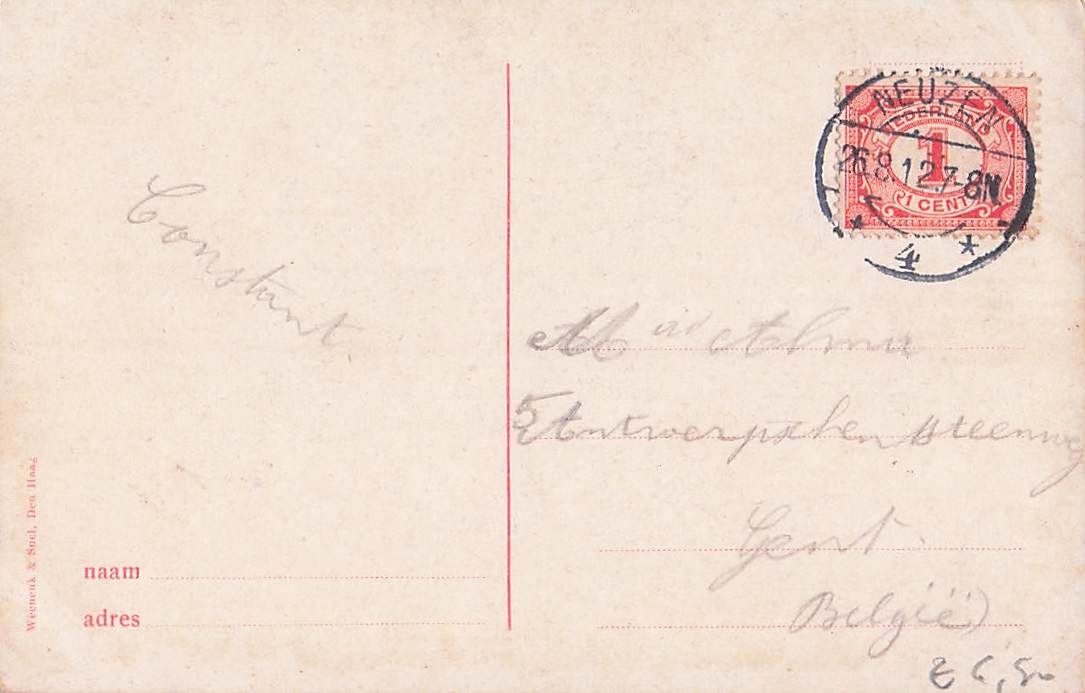 NEUZEN
NEDERLAND
1
26.8.12.7-8N
1 CENT
4
Constant.
Alma
5 Antwerpschen steenweg
Gent.
België)
naam
adres
Weenenk & Snel, Den Haag